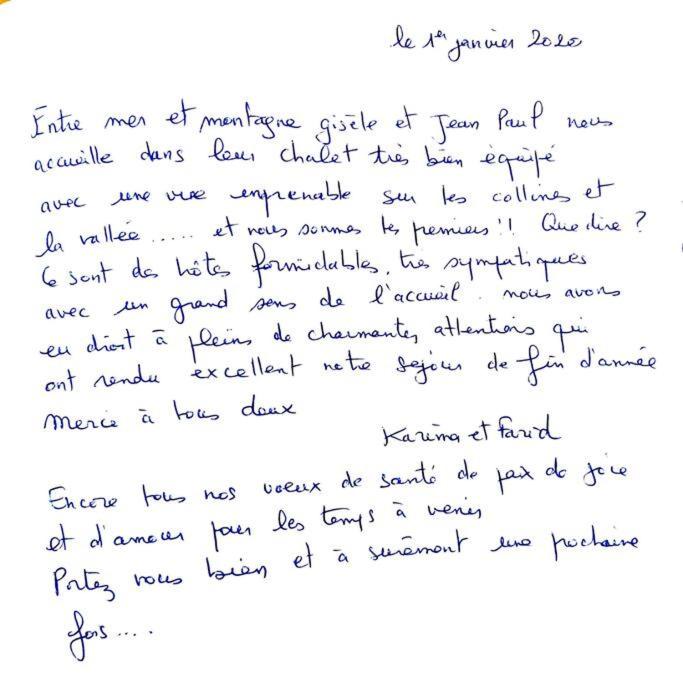 le 1er janvier 2020
Entre mer et montagne gisèle et Jean Paul nous
accueille dans leur chalet très bien équipé
avec une vue imprenable sur les collines et
la vallée ..... et nous sommes les premiers !! Que dire ?
Ce sont des hôtes formidables, très sympatiques
avec un grand sens de l'accueil. nous avons
eu droit à pleins de charmantes attentions qui
ont rendu excellent notre sejour de fin d'année
Merci à tous deux
Karima et Farid
Encore tous nos voeux de santé de paix de joie
et d'amour pour les temps à venir
Portez vous bien et à surêment une prochaine
fois ....